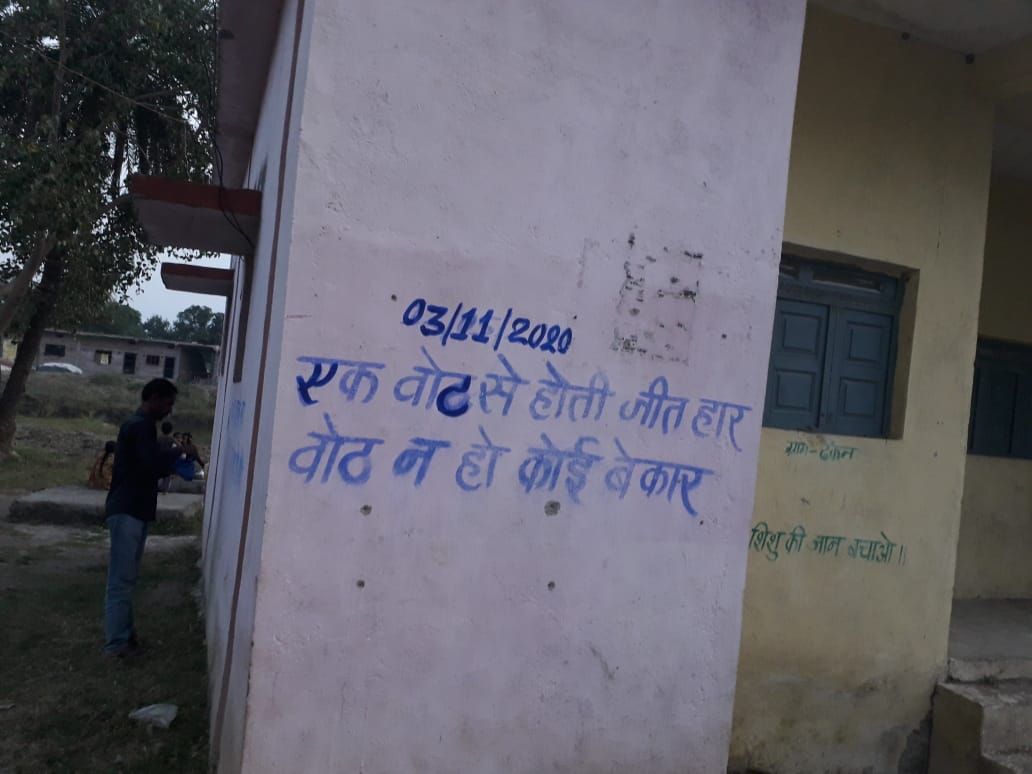 03/11/2020
एक वोट से होती जीत हार
वोट न हो कोई बेकार
शिशु की जान बचाओ।।